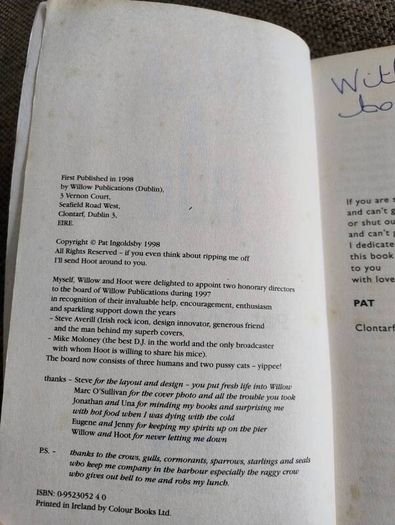 First Published in 1998
by Willow Publications (Dublin),
3 Vernon Court,
Seafield Road West,
Clontarf, Dublin 3,
EIRE.
Copyright © Pat Ingoldsby 1998
All Rights Reserved – if you even think about ripping me off
I'll send Hoot around to you.
Myself, Willow and Hoot were delighted to appoint two honorary directors
to the board of Willow Publications during 1997
in recognition of their invaluable help, encouragement, enthusiasm
and sparkling support down the years
– Steve Averill (Irish rock icon, design innovator, generous friend
and the man behind my superb covers.
- Mike Moloney (the best D.J. in the world and the only broadcaster
with whom Hoot is willing to share his mice).
The board now consists of three humans and two pussy cats – yippee!
thanks – Steve for the layout and design – you put fresh life into Willow
Marc O'Sullivan for the cover photo and all the trouble you took
Jonathan and Una for minding my books and surprising me
with hot food when I was dying with the cold
Eugene and Jenny for keeping my spirits up on the pier
Willow and Hoot for never letting me down
P.S. - thanks to the crows, gulls, cormorants, sparrows, starlings and seals
who keep me company in the harbour especially the raggy crow
who gives out hell to me and robs my lunch.
ISBN: 0-9523052 4 0
Printed in Ireland by Colour Books Ltd.
With
If you are
and can't g
or shut ou
and can't
I dedicate
this book
to you
with love
PAT
Clontarf